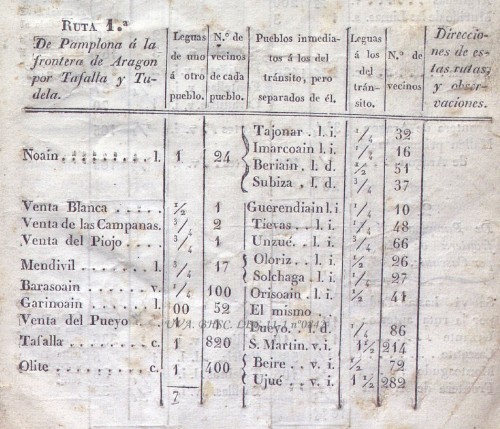 RUTA 1.ª
De Pamplona á la frontera de Aragon por Tafalla y Tudela.
Leguas de uno á otro pueblo.
N.º de vecinos de cada pueblo.
Pueblos inmediatos á los del tránsito, pero separados de él.
Leguas á los del tránsito.
N.º de vecinos
Direcciones de estas rutas, y observaciones.
Noain l. 1 24
Tajonar l. i. 1/4 32
Imarcoain l. i. 1/4 16
Beriain l. d. 1/2 51
Subiza l. d. 3/4 37
Venta Blanca 1/2 1 Guerendiain l. i. 1/4 10
Venta de las Campanas. 3/4 2 Tievas l. i. 1/4 48
Venta del Piojo 3/4 1 Unzué l. i. 3/4 66
Mendivil l. 3/4 17
Oloriz l. i. 1/2 26
Solchaga l. i. 1/4 27
Barasoain v. 1/4 100 Orisoain l. i. 1/2 41
Garinoain l. 00 52 El mismo
Venta del Pueyo Pueyo l. d. 1/4 86
Tafalla c. 1 820 S. Martin v. i. 1 1/2 214
Olite c. 1 400
Beire v. i. 1/2 72
Ujué v. i. 1 1/2 282
7